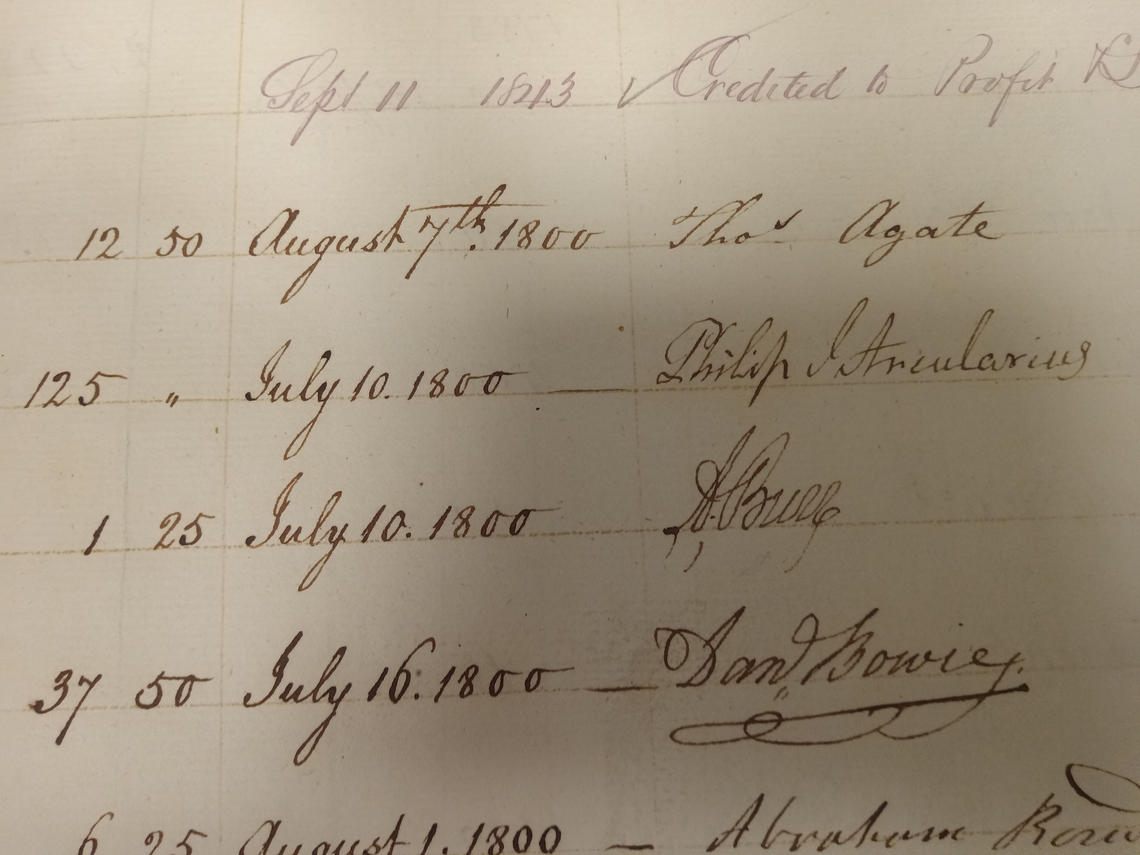 Sept 11 1843 ✓ Credited to Profit &
12 50 August 7th. 1800 Thos Agate
125 〃 July 10. 1800 — Philip I Arcularius
1 25 July 10. 1800
37 50 July 16. 1800 — Danl Bowie
6 25 August 1. 1800 — Abraham